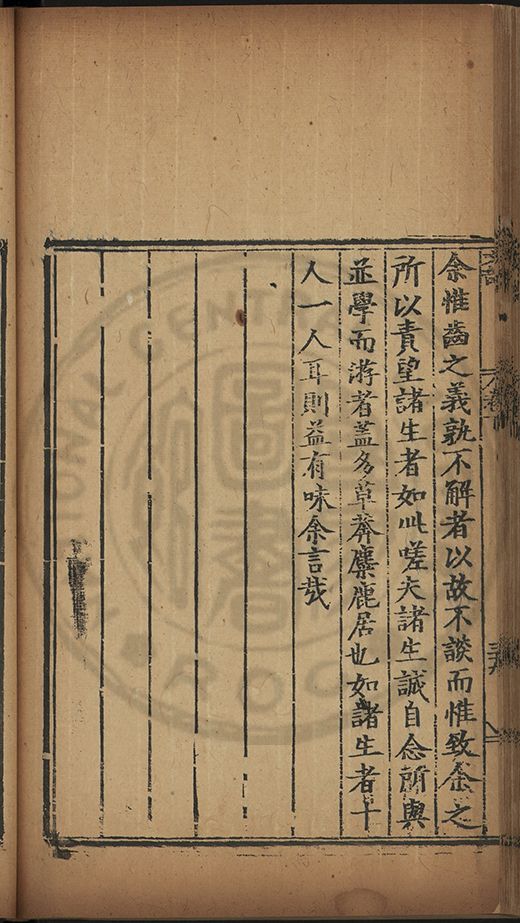 余惟齒之義孰不解者以故不談而惟致余之
所以責望諸生者如此嗟夫諸生誠自念所與
並學而游者蓋多草莽麋鹿居也如諸生者十
人一人耳則益有味余言哉